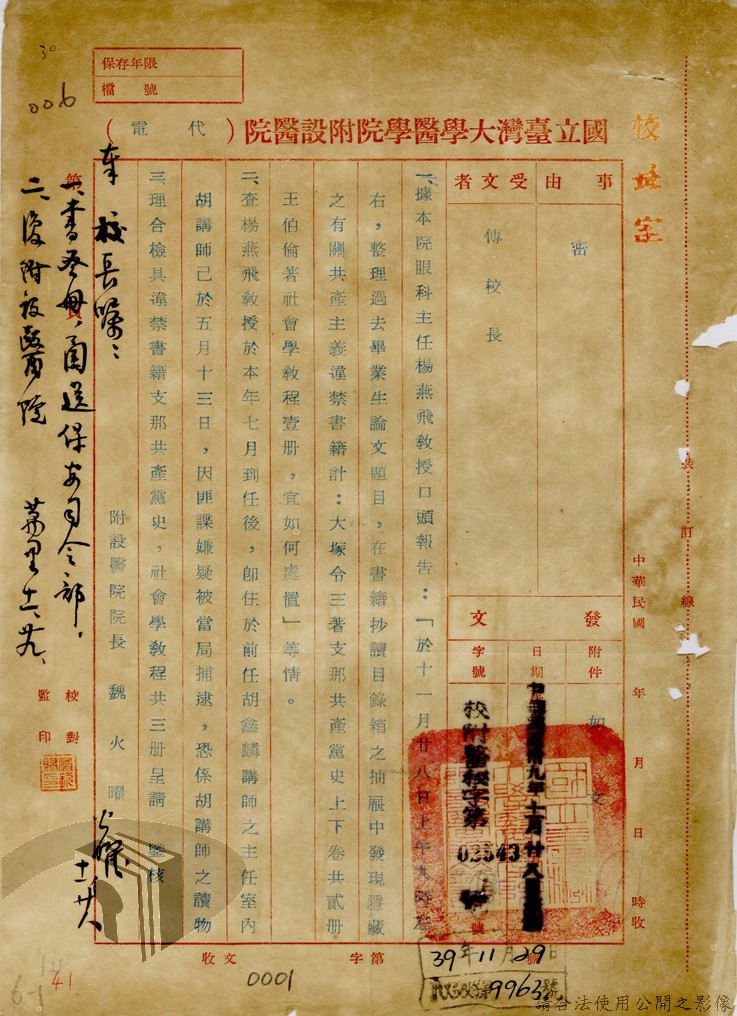 30
006
保存年限
檔號
國立臺灣大學醫學院附設醫院（代電）
校長室
事由
密
受文者
傅校長
發文
附件
如文
日期
字號
中華民國卅九年十一月廿八日
校附醫秘字第
02543
號
一、據本院眼科主任楊燕飛教授口頭報告：「於十一月廿八日上午九時左
右，整理過去畢業生論文題目，在書籍抄讀目錄箱之抽屜中發現隱藏
之有關共產主義違禁書籍計：大塚令三著支那共產黨史上下卷共貳册
王伯倫著社會學教程壹册，宜如何處置」等情。
二、查楊燕飛教授於本年七月到任後，卽住於前任胡鑫麟講師之主任室內
胡講師已於五月十三日，因匪諜嫌疑被當局捕逮，恐係胡講師之讀物
三、理合檢具違禁書籍支那共產黨史，社會學教程共三册呈請　鑒核
附設醫院院長　魏火曜
火曜
十一、廿八
奉校長囑：
一、書叁册，函送保安司令部。
二、復附設醫院
十一、廿九、
校對
監印
裝訂線
中華民國　年　月　日　時收
收文　字第　號
0001
39年11月29日
9963號
41
6-1
請合法使用公開之影像